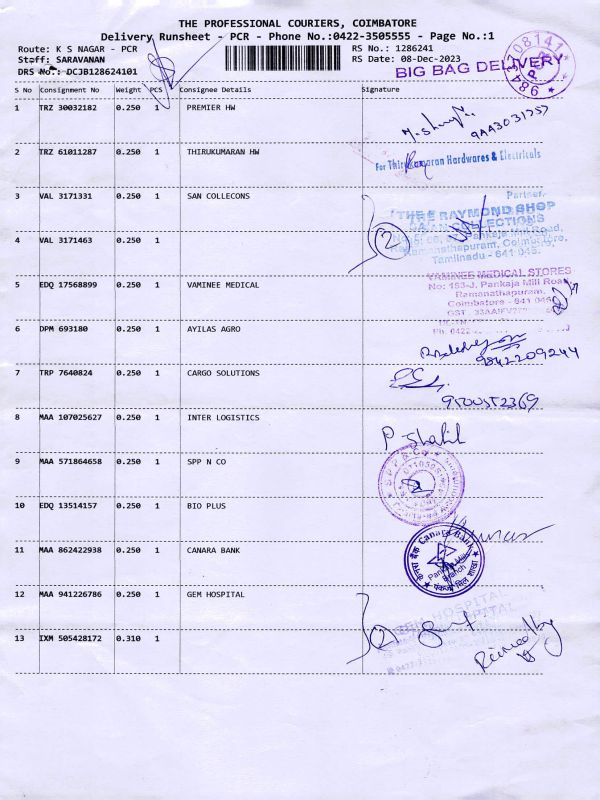 THE PROFESSIONAL COURIERS, COIMBATORE
Delivery Runsheet - PCR - Phone No.:0422-3505555 - Page No.:1
Route: K S NAGAR - PCR RS No.: 1286241
Staff: SARAVANAN RS Date: 08-Dec-2023
DRS No.: DCJB128624101
BIG BAG DELIVERY
S No Consignment No Weight PCS Consignee Details Signature
1 TRZ 30032182 0.250 1 PREMIER HW
2 TRZ 61011287 0.250 1 THIRUKUMARAN HW
For Thirukumaran Hardwares & Electricals
Partner.
3 VAL 3171331 0.250 1 SAN COLLECONS
THE RAYMOND SHOP
COLLECTIONS
Pankaja Mill Road,
Ramanathapuram, Coimbatore,
Tamilnadu - 641 045.
2
4 VAL 3171463 0.250 1
5 EDQ 17568899 0.250 1 VAMINEE MEDICAL
YAMINEE MEDICAL STORES
No: 153-J, Pankaja Mill Road,
Ramanathapuram,
Coimbatore - 641 045
6 DPM 693180 0.250 1 AYILAS AGRO
9842209244
7 TRP 7640824 0.250 1 CARGO SOLUTIONS
8 MAA 107025627 0.250 1 INTER LOGISTICS
9 MAA 571864658 0.250 1 SPP N CO
S P P & Co
10 EDQ 13514157 0.250 1 BIO PLUS
11 MAA 862422938 0.250 1 CANARA BANK
केनरा बैंक Canara Bank
Pankaja Mill
Branch
12 MAA 941226786 0.250 1 GEM HOSPITAL
HOSPITAL
2
13 IXM 505428172 0.310 1